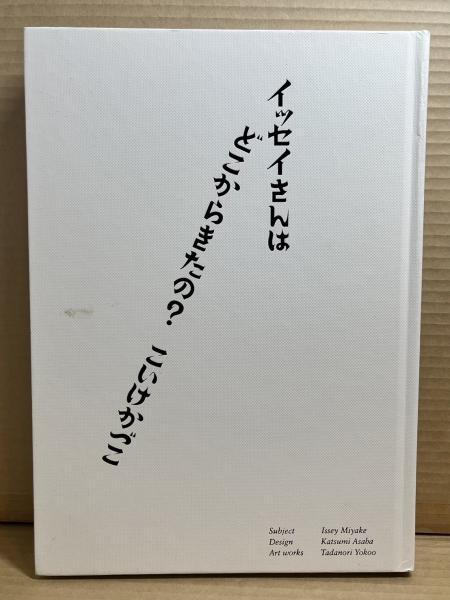 イッセイさんは
どこからきたの?
こいけかづこ
Subject Issey Miyake
Design Katsumi Asaba
Art works Tadanori Yokoo